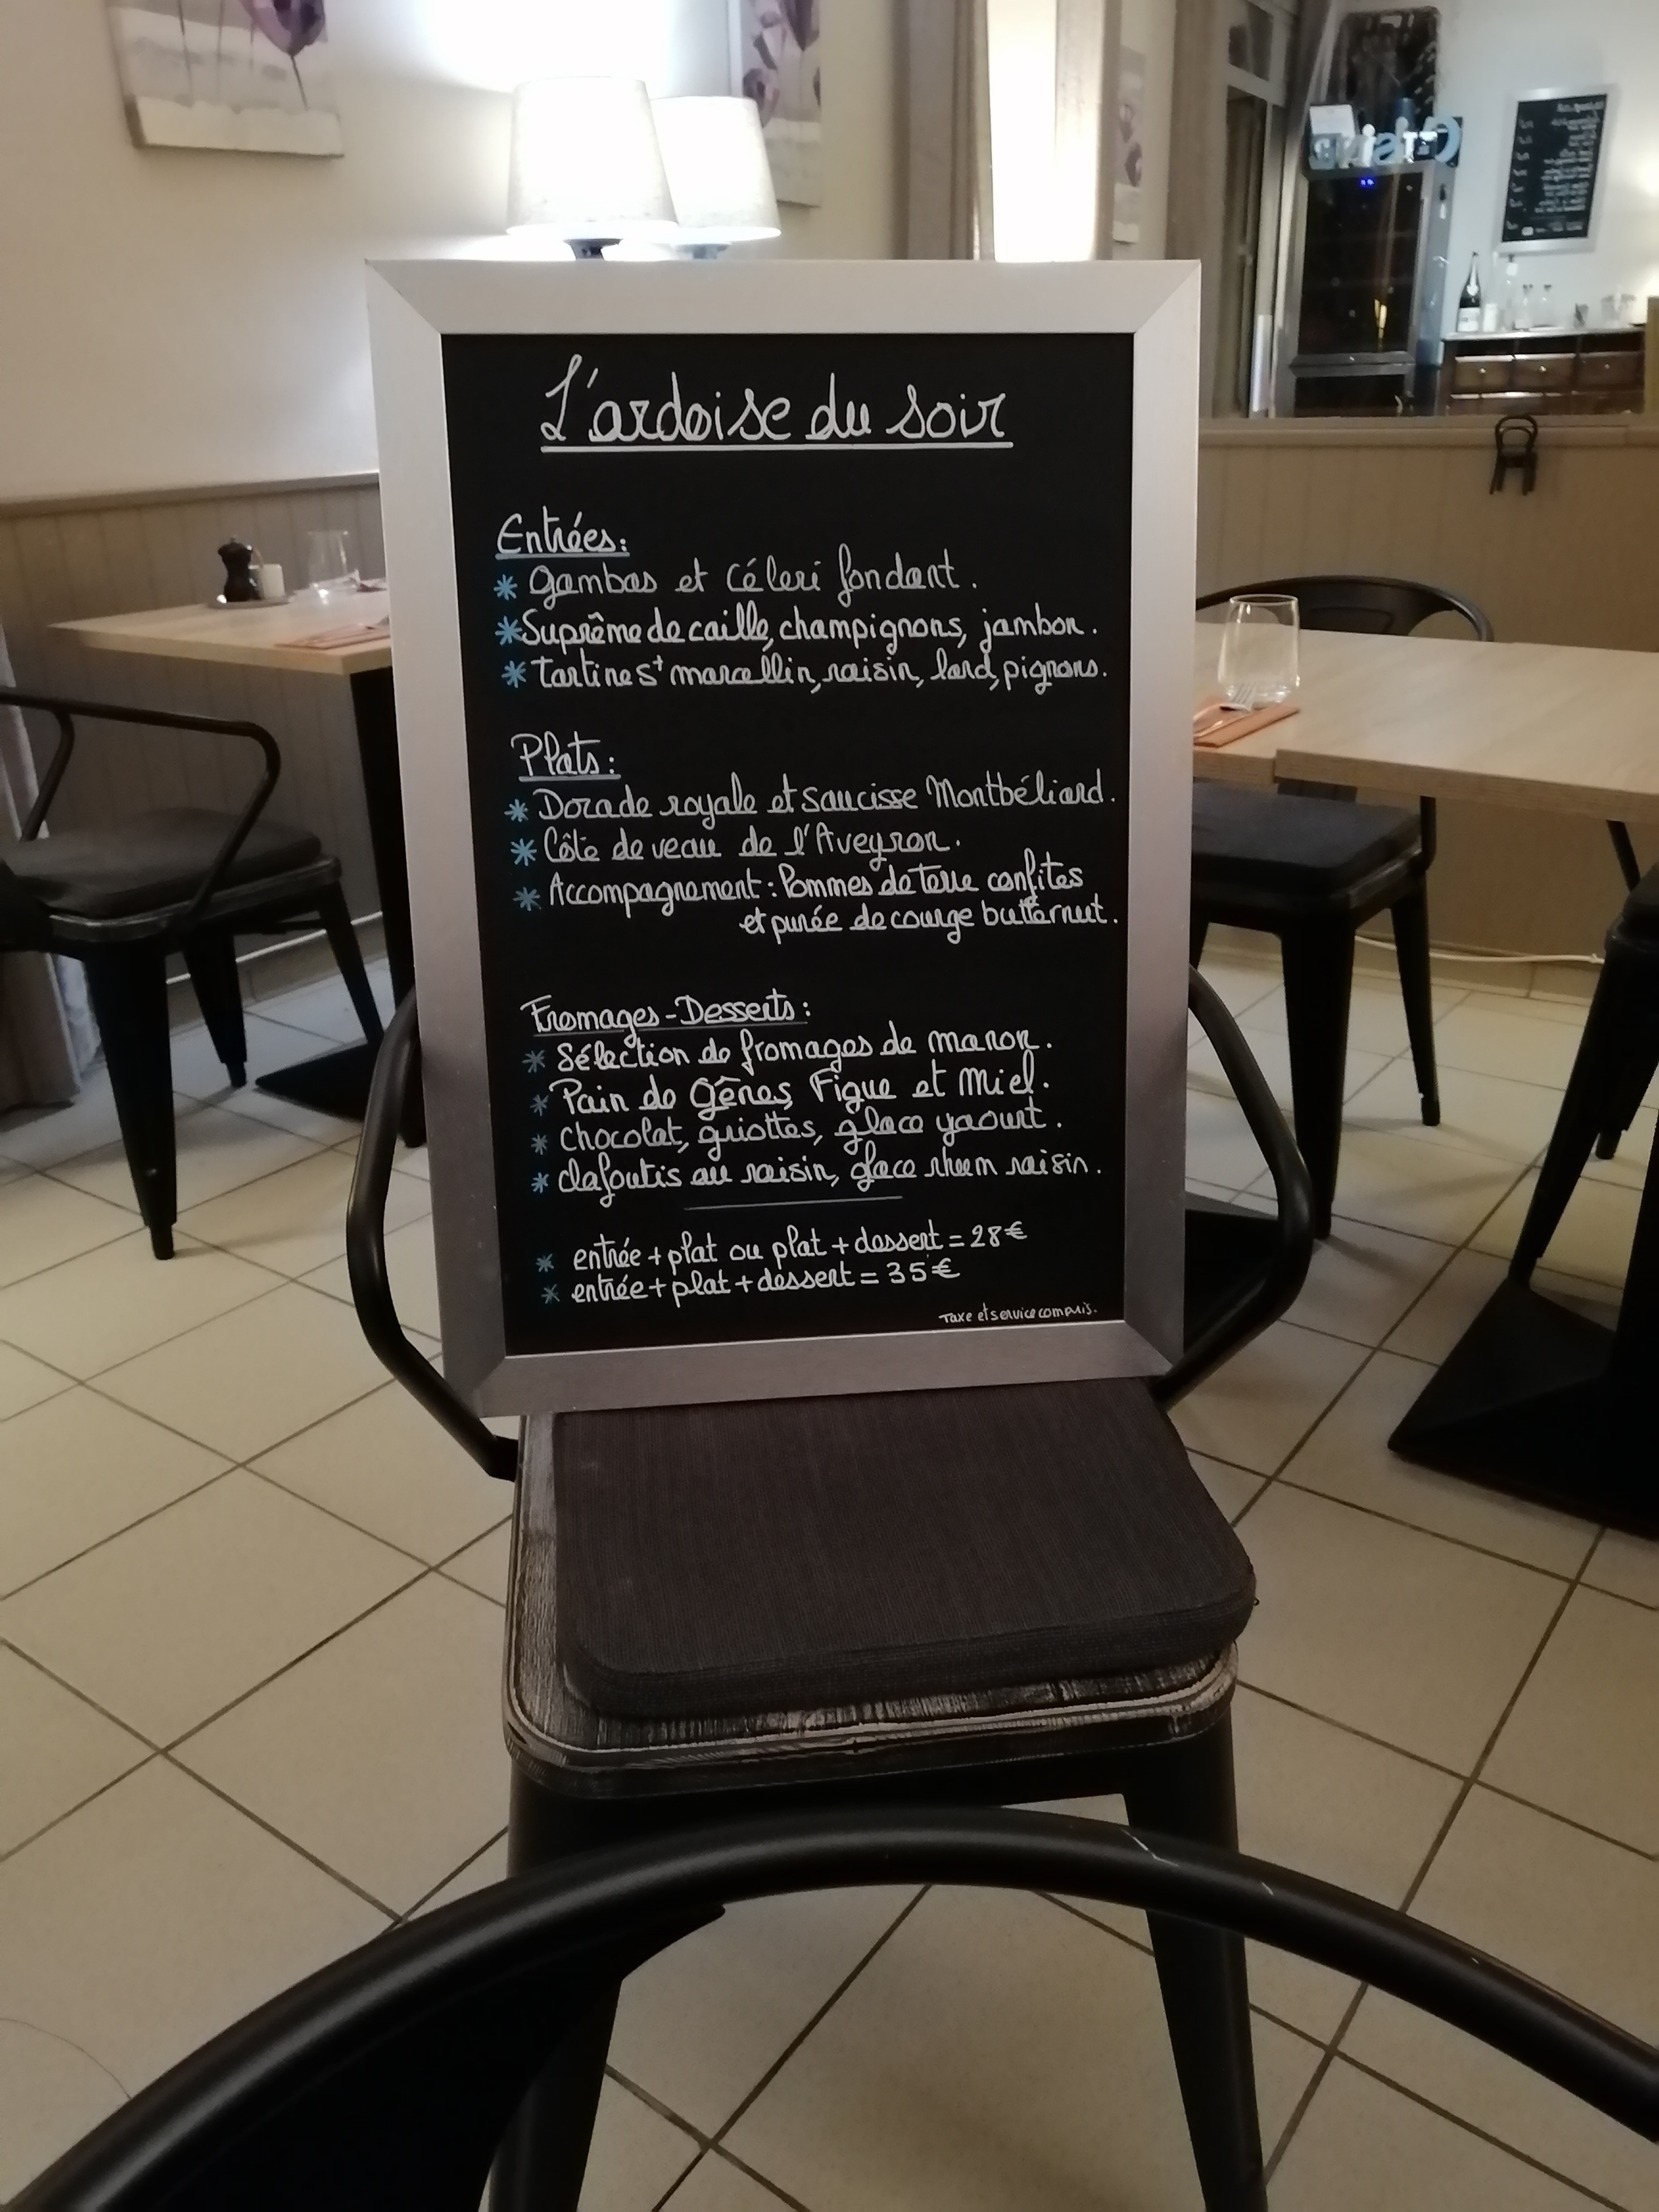 L'ardoise du soir
Entrées:
* Gambas et Céleri fondant.
* Suprême de caille, champignons, jambon.
* Tartine St marcellin, raisin, lard, pignons.
Plats:
* Dorade royale et saucisse Montbéliard.
* Côte de veau de l'Aveyron.
* Accompagnement: Pommes de terre confites
et purée de courge butternut.
Fromages-Desserts:
* Sélection de fromages de manon.
* Pain de Gênes, Figue et Miel.
* chocolat, griottes, glace yaourt.
* clafoutis au raisin, glace rhum raisin.
* entrée + plat ou plat + dessert = 28€
* entrée + plat + dessert = 35€
Taxe et service compris.
CUISINE